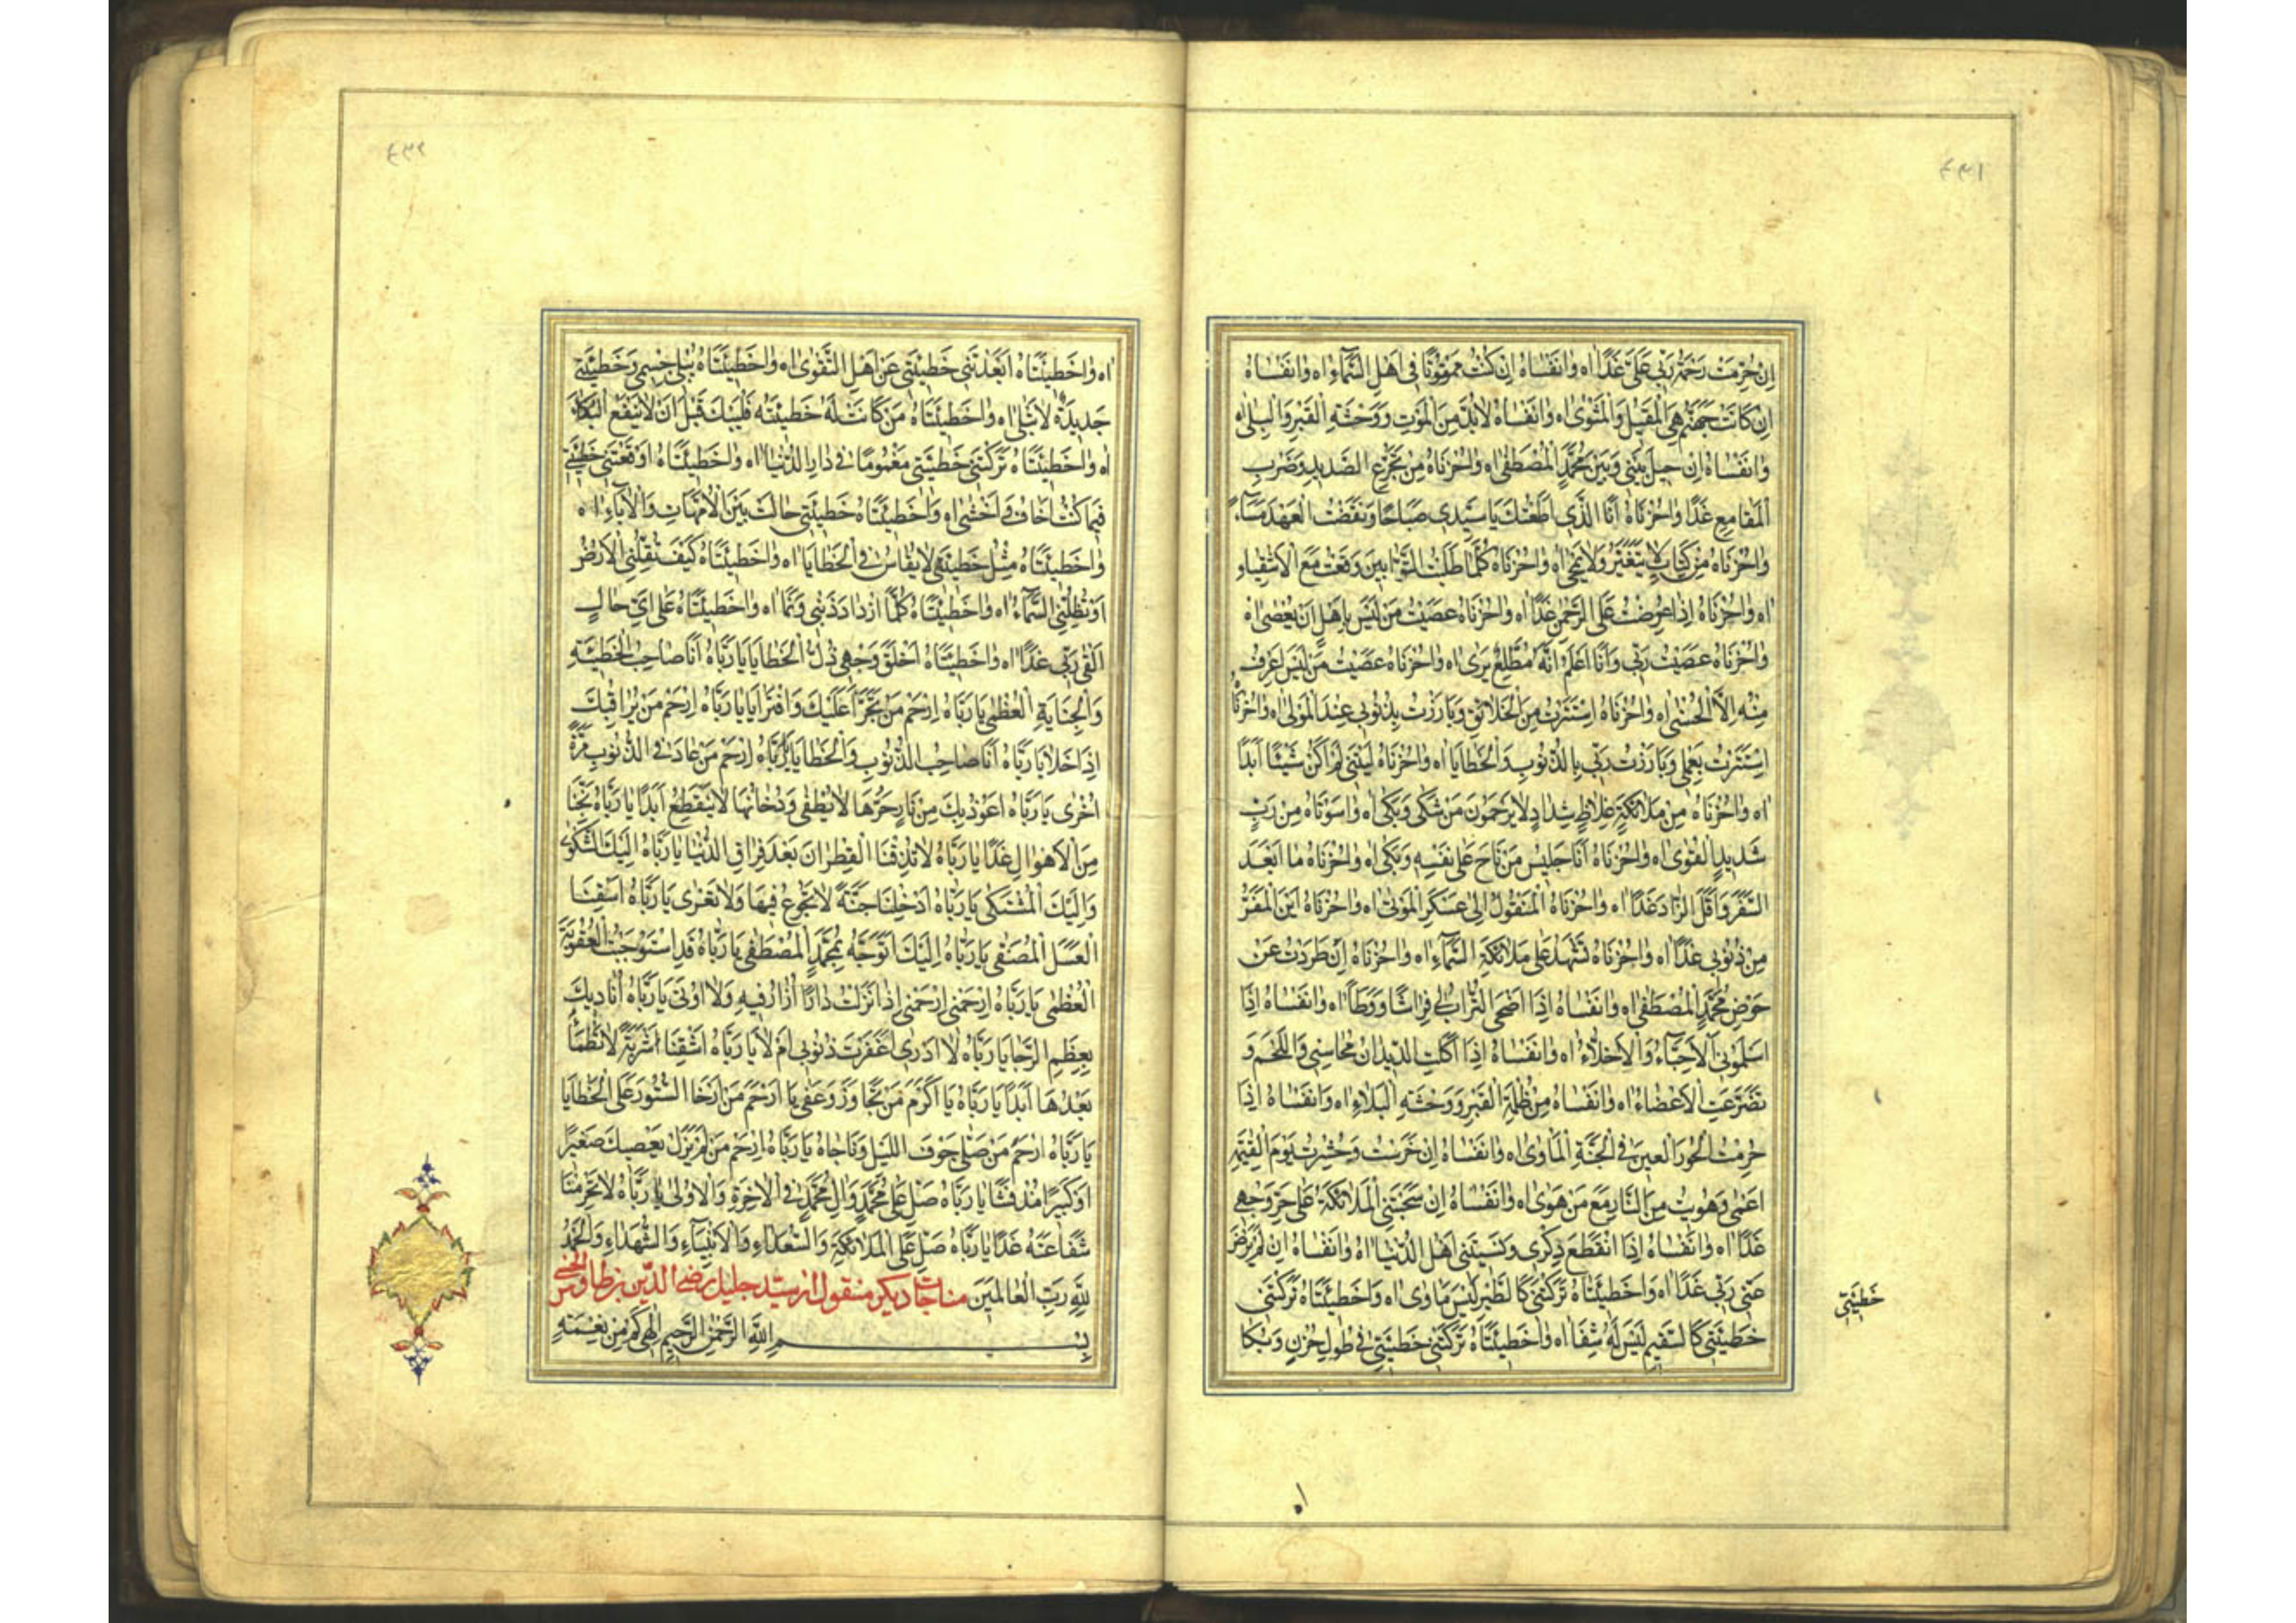 ٤٣١
اِنْ حُرِّمَتْ رَحْمَةُ رَبّى عَلَىَّ غَدًا اه وانَفْساهُ اِنْ كُنْتُ مَمْقُوتًا فى اَهْلِ السَّمآءِ اه وانَفْساهُ
اِنْ كانَتْ جَهَنَّمُ هِىَ الْمَقيلَ وَالْمَثْوى اه وانَفْساهُ لابُدَّ مِنَ الْمَوْتِ وَوَحْشَةِ الْقَبْرِ وَالْبِلى اه
وانَفْساهُ اِنْ حيلَ بَيْنى وَبَيْنَ مُحَمَّدٍ الْمُصْطَفى اه واحُزْناهُ مِنْ تَجَرُّعِ الصَّديدِ وَضَرْبِ
الْمَقامِعِ غَدًا واحُزْناهُ اَنَا الَّذى اَطَعْتُكَ يا سَيِّدى صَباحًا وَنَقَضْتُ الْعَهْدَ مَسآءً
واحُزْناهُ مِنْ كِتابٍ لا يَتَغَيَّرُ وَلا يُمْحى اه واحُزْناهُ كُلَّما طَلَبْتُ التَّوّابينَ وَقَعْتُ مَعَ الْاَشْقِياءِ
اه واحُزْناهُ اِذا عُرِضْتُ عَلَى الرَّحْمنِ غَدًا اه واحُزْناهُ عَصَيْتُ مَنْ لَيْسَ بِاَهْلٍ اَنْ يُعْصى اه
واحُزْناهُ عَصَيْتُ رَبّى وَاَنَا اَعْلَمُ اَنَّهُ مُطَّلِعٌ يَرى اه واحُزْناهُ عَصَيْتُ مَنْ لَيْسَ اَعْرِفُ
مِنْهُ اِلَّا الْحُسْنى اه واحُزْناهُ اِسْتَتَرْتُ مِنَ الْخَلائِقِ وَبارَزْتُ بِذُنُوبى عِنْدَ الْمَوْلى اه واحُزْناهُ
اِسْتَتَرْتُ بِعَمَلى وَبارَزْتُ رَبّى بِالذُّنُوبِ وَالْخَطايا اه واحُزْناهُ لَيْتَنى لَمْ اَكُنْ شَيْئًا اَبَدًا
اه واحُزْناهُ مِنْ مَلائِكَةٍ غِلاظٍ شِدادٍ لا يَرْحَمُونَ مَنْ شَكى وَبَكى اه واسَوْتاهُ مِنْ رَبٍّ
شَديدِ الْقُوى اه واحُزْناهُ اَنَا جَليسُ مَنْ ناحَ عَلى نَفْسِهِ وَبَكى اه واحُزْناهُ ما اَبْعَدَ
السَّفَرَ وَاَقَلَّ الزّادَ غَدًا اه واحُزْناهُ الْمَنْقُولُ اِلى عَسْكَرِ الْمَوْتى اه واحُزْناهُ اَيْنَ الْمَفَرُّ
مِنْ ذُنُوبى غَدًا اه واحُزْناهُ تَشْهَدُ عَلَىَّ مَلائِكَةُ السَّمآءِ اه واحُزْناهُ اِنْ طُرِدْتُ عَنْ
حَوْضِ مُحَمَّدٍ الْمُصْطَفى اه وانَفْساهُ اِذا اَضْحَى التُّرابُ لى فِراشًا وَوِطآءً اه وانَفْساهُ اِذا
اَسْلَمُونى الْاَحِبّآءُ وَالْاَخِلّآءُ اه وانَفْساهُ اِذا اَكَلَتِ الدّيدانُ مَحاسِنى وَاللَّحْمَ وَ
تَضَرَّعَتِ الْاَعْضاءُ اه وانَفْساهُ مِنْ ظُلْمَةِ الْقَبْرِ وَوَحْشَةِ الْبَلاءِ اه وانَفْساهُ اِذا
حُرِمْتُ الْحُورَ الْعينَ فى الْجَنَّةِ الْمَاْوى اه وانَفْساهُ اِنْ خَرِسْتُ وَحُشِرْتُ يَوْمَ الْقِيمَةِ
اَعْمى وَهَوَيْتُ مِنَ النّارِ مَعَ مَنْ هَوى اه وانَفْساهُ اِنْ سَحَبَتْنِى الْمَلائِكَةُ عَلى حَرِّ وَجْهى
غَدًا اه وانَفْساهُ اِذَا انْقَطَعَ ذِكْرى وَنَسِيَتْنى اَهْلُ الدُّنْيا اه وانَفْساهُ اِنْ لَمْ يَرْضَ
عَنّى رَبّى غَدًا اه واخَطيئَتاهُ تَرَكَتْنى كَالطَّيْرِ لَيْسَ مَاْوى اه واخَطيئَتاهُ تَرَكَتْنى
خَطيئَتى
خَطيئَتى كَالسَّقيمِ لَيْسَ لَهُ شِفا اه واخَطيئَتاهُ تَرَكَتْنى خَطيئَتى فى طُولِ حُزْنٍ وَبُكا
اه
٤٣٢
اه واخَطيئَتاهُ اَبْعَدَتْنى خَطيئَتى عَنْ اَهْلِ التَّقْوى اه واخَطيئَتاهُ يَبْلى جِسْمى وَخَطيئَتى
جَديدَةٌ لا تَبْلى اه واخَطيئَتاهُ مَنْ كانَتْ لَهُ خَطيئَتُه فَلْيَبْكِ قَبْلَ اَنْ لا يَنْفَعَ الْبُكاءُ
اه واخَطيئَتاهُ تَرَكَتْنى خَطيئَتى مَغْمُومًا فى دارِ الدُّنْيا اه واخَطيئَتاهُ اَوْقَعَتْنى خَطيئَتى
فيما كُنْتُ اَخافُ وَاَخْشى اه واخَطيئَتاهُ خَطيئَتى حالَتْ بَيْنَ الْاُمَّهاتِ وَالْآباءِ اه
واخَطيئَتاهُ مِثْلُ خَطيئَتى لا يُقاسُ فى الْخَطايا اه واخَطيئَتاهُ كَيْفَ تُقِلُّنِى الْاَرْضُ
اَوْ تُظِلُّنِى السَّمآءُ اه واخَطيئَتاهُ كُلَّمَا ازْدادَ ذَنْبى وَنَما اه واخَطيئَتاهُ عَلى اَىِّ حالٍ
اَلْقى رَبّى غَدًا اه واخَطيئَتاهُ اَخْلَقَ وَجْهى ذُلُّ الْخَطايا يا رَبّاهُ اَنَا صاحِبُ الْخَطيئَةِ
وَالْجِنايَةِ الْعُظْمى يا رَبّاهُ اِرْحَمْ مَنْ تَجَرَّاَ عَلَيْكَ وَافْتَرى يا رَبّاهُ اِرْحَمْ مَنْ يُراقِبُكَ
اِذا خَلا يا رَبّاهُ اَنَا صاحِبُ الذُّنُوبِ وَالْخَطايا يا رَبّاهُ اِرْحَمْ مَنْ عادَ فى الذُّنُوبِ مَرَّةً
اُخْرى يا رَبّاهُ اَعُوذُ بِكَ مِنْ نارٍ حَرُّها لا يُطْفى وَدُخانُها لا يَنْقَطِعُ اَبَدًا يا رَبّاهُ نَجِّنا
مِنَ الْاَهْوالِ غَدًا يا رَبّاهُ لا تُذِقْنَا الْقَطِرانَ بَعْدَ فِراقِ الدُّنْيا يا رَبّاهُ اِلَيْكَ الشَّكْوى
وَاِلَيْكَ الْمُشْتَكى يا رَبّاهُ اَدْخِلْنا جَنَّةً لا نَجُوعُ فيها وَلا نَعْرى يا رَبّاهُ اَسْقِنَا
الْعَسَلَ الْمُصَفّى يا رَبّاهُ اِلَيْكَ اَتَوَجَّهُ بِمُحَمَّدٍ الْمُصْطَفى يا رَبّاهُ قَدِ اسْتَوْجَبْتُ الْعُقُوبَةَ
الْعُظْمى يا رَبّاهُ اِرْحَمْنى اِرْحَمْنى اِذا نَزَلْتُ دارًا اُزارُ فيهِ وَلا اُوتى يا رَبّاهُ اُناديكَ
بِعِظَمِ الرَّجا يا رَبّاهُ لا اَدْرى اَغَفَرْتَ ذُنُوبى اَمْ لا يا رَبّاهُ اَسْقِنا شَرْبَةً لا نَظْمَأُ
بَعْدَها اَبَدًا يا رَبّاهُ يا اَكْرَمَ مَنْ تَجاوَزَ وَعَفى يا اَرْحَمَ مَنْ اَرْخَا السُّتُورَ عَلَى الْخَطايا
يا رَبّاهُ ارْحَمْ مَنْ صَلّى جَوْفَ اللَّيْلِ وَناجاهُ يا رَبّاهُ اِرْحَمْ مَنْ لَمْ يَزَلْ يَعْصيكَ صَغيرًا
اَوْ كَبيرًا مُنْذُ نَشَا يا رَبّاهُ صَلِّ عَلى مُحَمَّدٍ وَالِ مُحَمَّدٍ فى الْاخِرَةِ وَالْاُولى يا رَبّاهُ لا تَحْرِمْنا
شَفاعَتَهُ غَدًا يا رَبّاهُ صَلِّ عَلَى الْمَلائِكَةِ وَالسُّعَداءِ وَالْاَنْبِياءِ وَالشُّهَداءِ وَالْحَمْدُ
لِلّهِ رَبِّ الْعالَمينَ مناجات ديكر منقول از سيد جليل رضى الدين بن طاوس الحسنى
بِسْمِ اللهِ الرَّحْمنِ الرَّحيمِ اِلهى كَمْ مِنْ نِعْمَةٍ